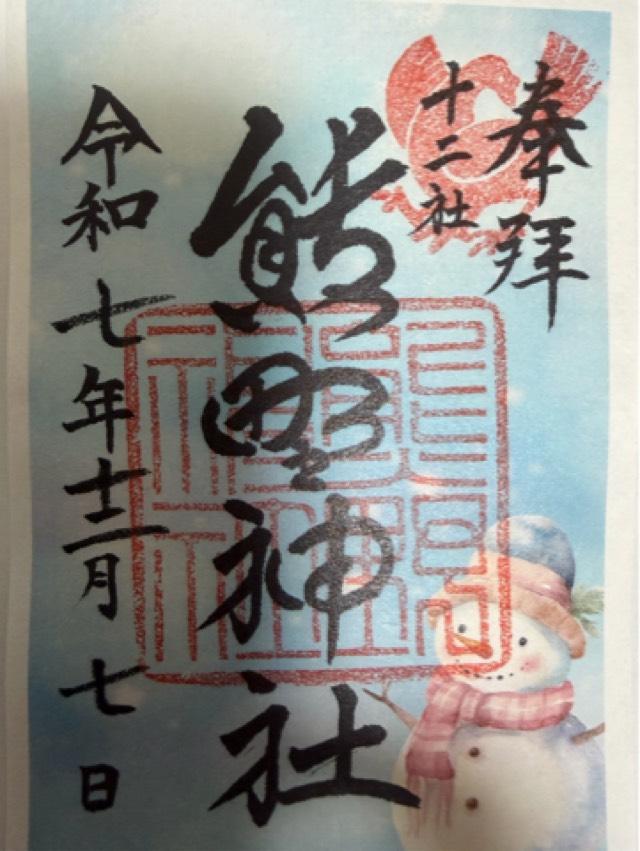 奉拝
十二社
熊野神社
令和七年十二月七日